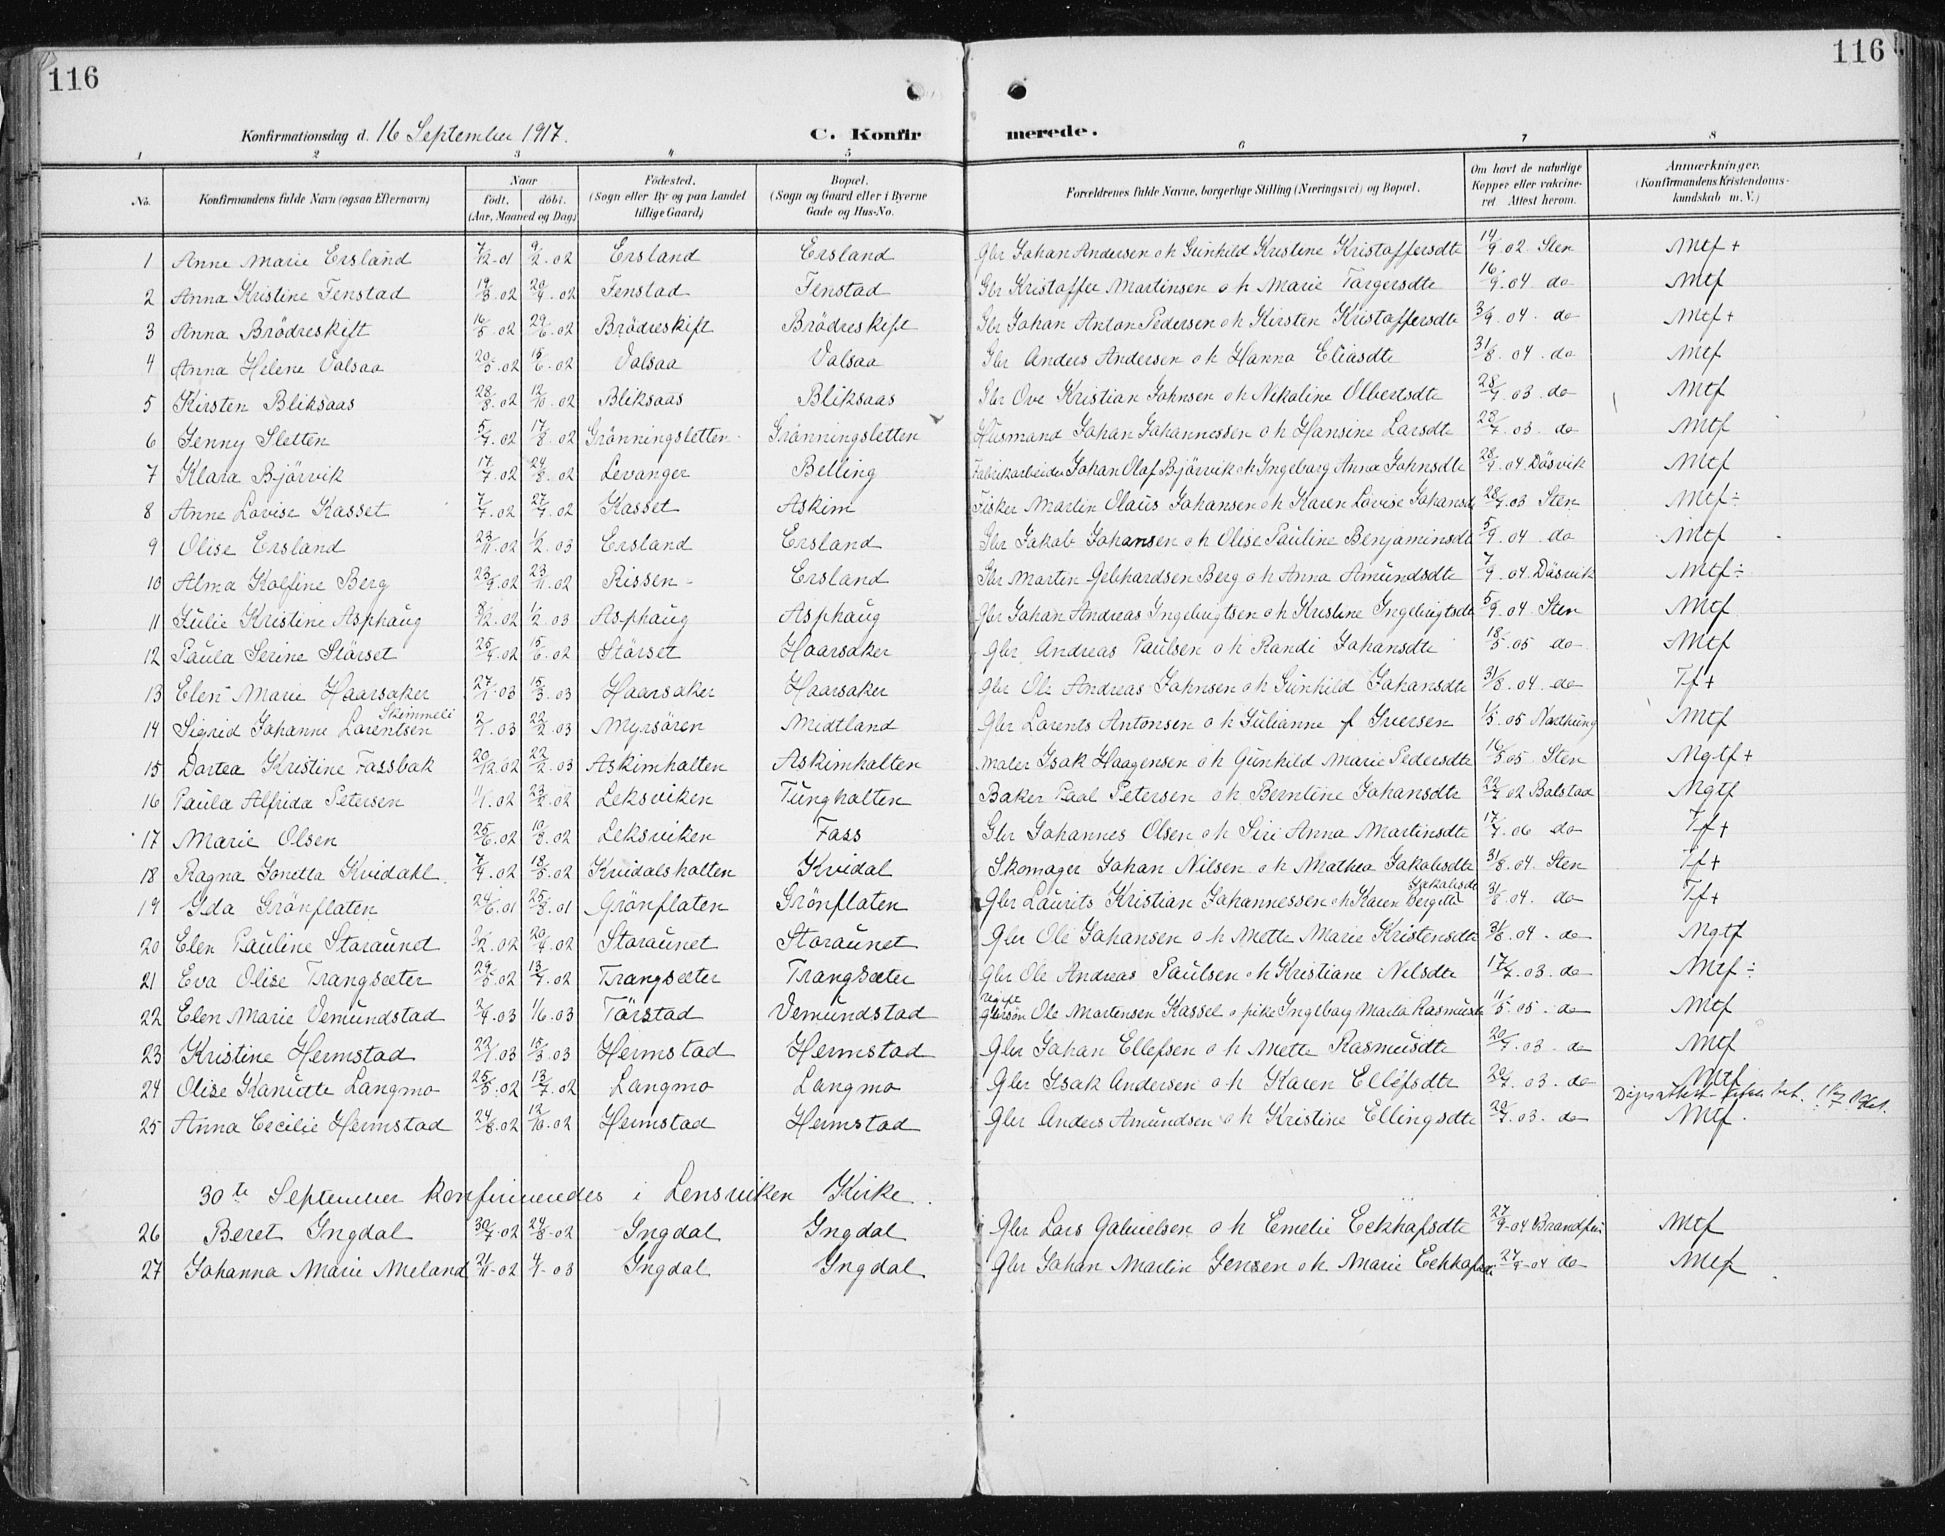 116
116
Konfirmationsdag d. 16 September 1917.
C. Konfirmerede.
1 2 3 4 5 6 7 8
No. Konfirmandens fulde Navn (ogsaa Efternavn) Naar født. døbt. (Aar, Maaned og Dag) Fødested. (Sogn eller By og paa Landet tillige Gaard) Bopæl. (Sogn og Gaard eller i Byerne Gade og Hus-No. Forældrenes fulde Navne, borgerlige Stilling (Næringsvei) og Bopæl. Om havt de naturlige Kopper eller vakcineret. Attest herom. Anmærkninger. (Konfirmandens Kristendomskundskab m. V.)
1 Anne Marie Ersland 7/12-01 9/2.02 Ersland Ersland Gbr Johan Andersen o h Gunhild Kristine Kristoffersdtr 14/9 02 Sten Mtf +
2 Anna Kristine Fenstad 19/3.02 20/4.02 Fenstad Fenstad Gbr Kristoffer Martinsen o h Marie Torgersdtr 16/9.04 do Mtf
3 Anna Brödreskift 16/5.02 29/6.02 Brödreskift Brödreskift Gbr Johan Anton Pedersen o h Kirsten Kristoffersdtr 3/9.04. do Mtf +
4 Anna Helene Valsaa 20/5.02 15/6.02 Valsaa Valsaa Gbr Anders Andersen o h Hanna Eliasdtr 31/8.04. do Mtf
5 Kirsten Bliksaas 28/8.02 12/10.02 Bliksaas Bliksaas Gbr Ove Kristian Johnsen o h Nikoline Olbertsdtr 28/7.03. do Mtf
6 Jenny Sletten 5/7.02 17/8.02 Grönningsletten Grönningsletten Husmand Johan Johannessen o h Hansine Larsdtr 28/7.03. do Mtf
7 Klara Björvik 17/7.02 24/8.02 Levanger Belling Fabrikarbeider Johan Olaf Björvik o h Ingeborg Anna Johnsdtr 28/9.04 Däsvik Mtf
8 Anne Lovise Kasset 7/7.02 27/7.02 Kasset Askim Fisker Martin Olaus Johansen o h Karen Lovise Johansd 28/7.03 Sten Mtf ÷
9 Olise Ersland 23/11.02 1/2.03 Ersland Ersland Gbr Jakob Johansen o h Olise Pauline Benjaminsdt 5/9.04 do Mtf
10 Alma Kolfine Berg 23/9.02 23/11.02 Rissen Ersland Gbr Martin Gebhardsen Berg o h Anna Amundsdtr 7/9.04 Däsvik Mtf ÷
11 Julie Kristine Asphaug 8/12.02 1/2.03 Asphaug Asphaug Gbr Johan Andreas Ingebrigtsen o h Kristine Ingebrigtsdt 5/9.04 Sten Mtf
12 Paula Serine Störset 25/4.02 15/6.02 Störset Haarsaker Gbr Andreas Paulsen o h Randi Johansdtr 18/5.05 do Mtf
13 Elen Marie Haarsaker 27/1.03 15/3.03 Haarsaker Haarsaker Gbr Ole Andreas Johnsen o h Gunhild Johansdtr 31/8.04. do Tf +
14 Sigrid Johanne Lorentsen Skimmeli 2/1.03 22/2.03 Myrsören Midtland Gbr Lorents Antonsen o h Julianne f Iversen 1/5.05 Mtf
15 Dortea Kristine Fossbak 20/12.02 22/2.03 Askimholten Askimholten Maler Isak Haagensen o h Gunhild Marie Pedersdtr 16/5 05 Sten Mgtf +
16 Paula Alfrida Petersen 1/1.02 23/2.02 Leksviken Tungholten Baker Paal Petersen o h Berntine Johansdtr 22/7 02 Balstad Mgtf
17 Marie Olsen 25/6.02 10/8.02 Leksviken Foss Gbr Johannes Olsen o h Siri Anna Martinsdtr 17/7.06 do Tf +
18 Ragna Jonetta Kvidahl 7/4.02 18/5.02 Kvidalsholten Kvidal Skomager Johan Nilsen o h Mathea Jakobsdtr 31/8.04. Sten Tf +
19 Ida Grönflaten 24/6.01 25/8.01 Grönflaten Grönflaten Gbr Laurits Kristian Johannessen o h Karen Bergitte Jakobsdt 31/8 04. do Tf +
20 Elen Pauline Storaunet 3/2.02 20/4.02 Storaunet Storaunet Gbr Ole Johansen o h Mette Marie Kristensdtr 31/8.04. do Mgtf
21 Eva Olise Trangsæter 29/5.02 13/7.02 Trangsæter Trangsæter Gbr Ole Andreas Paulsen o h Kristiane Nilsdtr 17/7.03. do Mtf ÷
22 Elen Marie Vemundstad 2/4.03 1/6.03 Törstad Vemundstad Ole Mortensen Kasset o pike Ingeborg Marta Rasmusdt 11/5.05. do Mtf
23 Kristine Hermstad 22/1.03 15/3.03 Hermstad Hermstad Gbr Johan Ellefsen o h Mette Rasmusdtr 20/7.03. do Mtf
24 Olise Kanutte Langmo 25/5.02 13/7.02 Langmo Langmo Gbr Isak Andersen o h Karen Ellefsdtr 20/7.03. do Mtf
25 Anna Cecilie Hermstad 24/8.02 12/10.02 Hermstad Hermstad Gbr Anders Amundsen o h Kristine Ellingsdtr 20/7.03. do Mtf.
30te September konfirmeredes i Lensviken Kirke.
26 Beret Ingdal 30/7-02 24/8-02 Ingdal Ingdal Gbr Lars Gabrielsen o h Emelie Eckhofsdtr 27/9-04 Mtf
27 Johanna Marie Meland 21/11-02 4/1-03 Ingdal Ingdal Gbr Johan Martin Jensen o h Marie Eckhofsdt 27/9-04 do Mtf